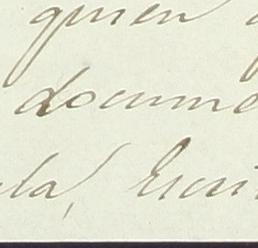 quien
docume
ula, Escri